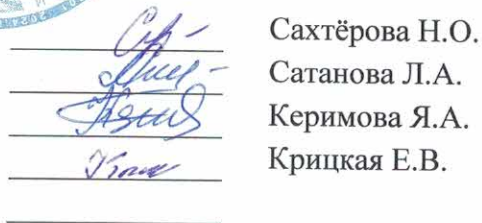 Сахтёрова Н.О.
Сатанова Л.А.
Керимова Я.А.
Крицкая Е.В.